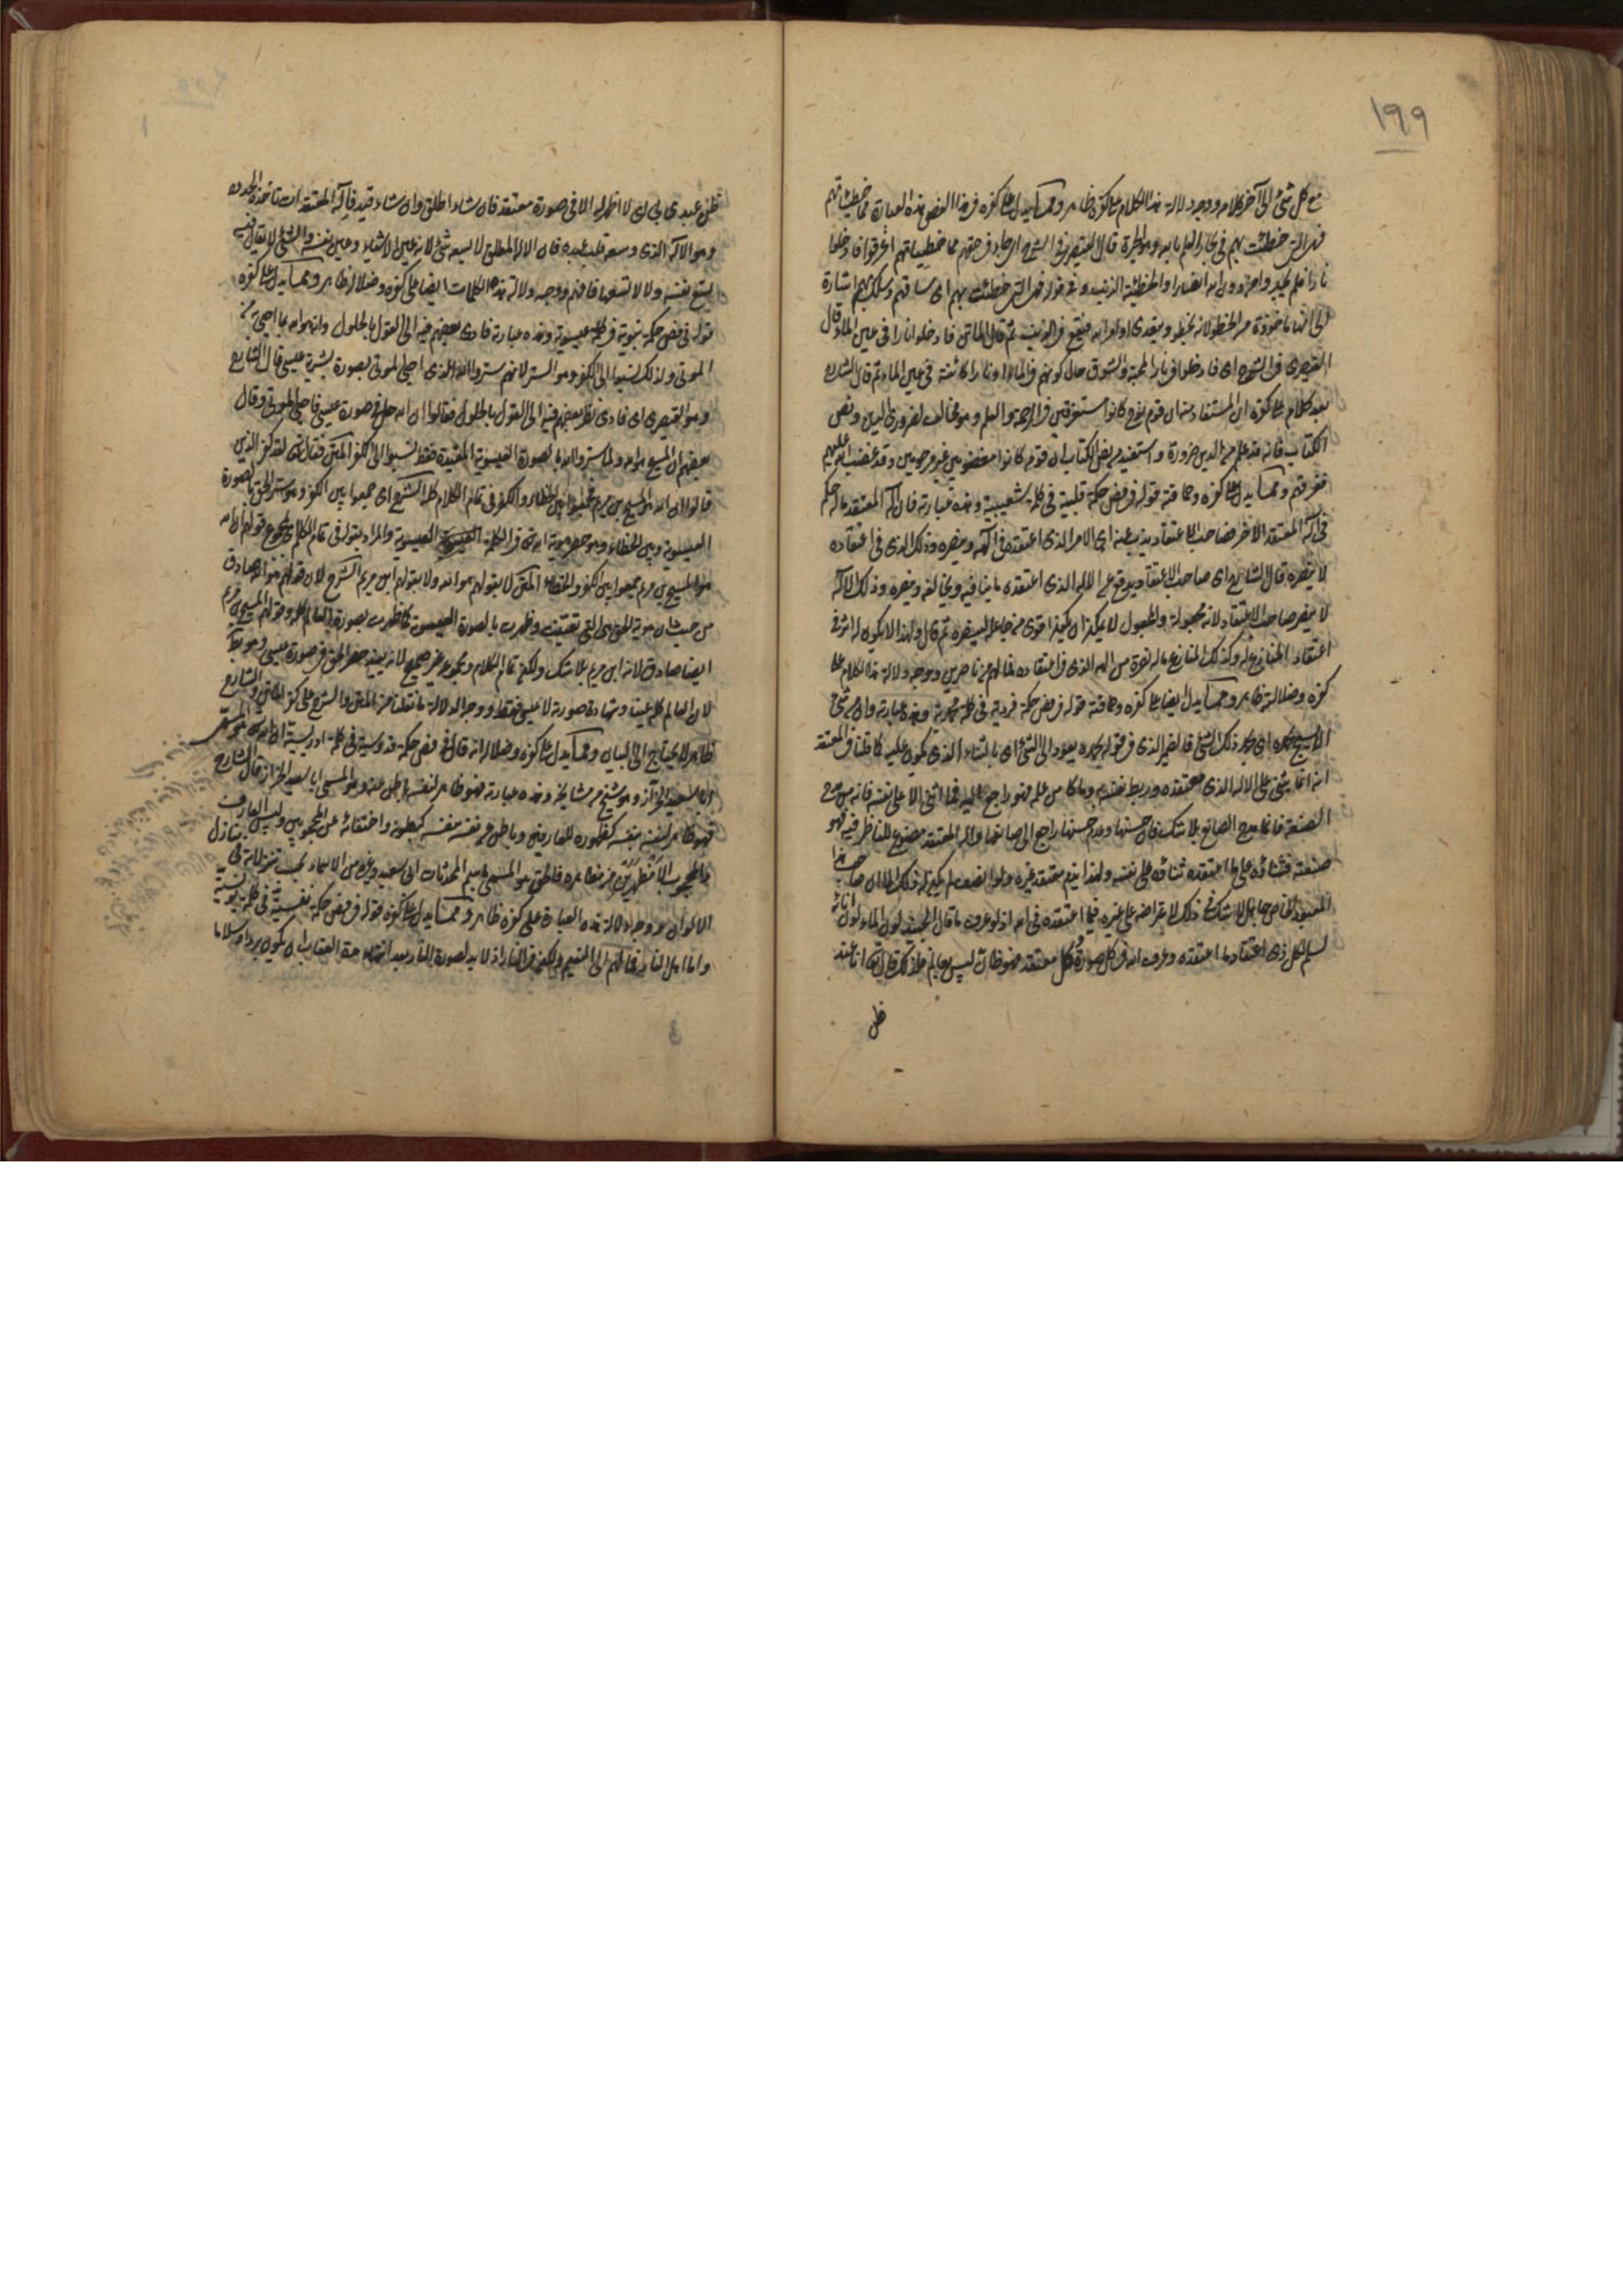 ١٩٩
مع كل شئ الى آخر كلامه ووجه دلالة هذا الكلام على كفره ظاهر ومما يدل على كفره في هذا الفص هذه العبارة مما خطيئاتهم
فهى التى خطت بهم فى بحار العلم بالله وهو الحيرة قال القيصرى فى الشرح اى جاء فى حقهم مما خطيئاتهم اغرقوا فادخلوا
نارا فلم يجدوا لهم من دون الله انصارا والخطيئة الذنب وفى قوله فهى التى خطت بهم اى ساقتهم وسلكت بهم اشارة
الى انها ماخوذة من الخطو لانه يخطو ويتعدى اوامر الله فيقع فى الذنب ثم قال الماتن فادخلوا نارا فى عين الماء قال
القيصرى فى الشرح اى فادخلوا فى نار المحبة والشوق حال كونهم فى الماء او نارا كائنة فى عين الماء ثم قال الشارح
بعد كلام على كفره ان المستفاد منه ان قوم نوح كانوا مستغرقين فى الرحمة والعلم وهو مخالف لضرورى الدين ونص
الكتاب فانه قد علم من الدين ضرورة واستفيد من نص الكتاب ان قومه كانوا مغضوبين غير مرحومين وقد غضب الله عليهم
فغرقهم ومما يدل على كفره وحماقته قوله فى فص حكمة قلبية فى كلمة شعيبية وهذه عبارته فان اله المعتقد ماله حكم
فى اله المعتقد الآخر فصاحب الاعتقاد يذب عنه اى الامر الذى اعتقده فى الهه وينصره وذلك الذى فى اعتقاده
لا ينصره قال الشارح اى صاحب الاعتقاد يدفع عن الاله الذى اعتقده ما ينافيه ويخالفه وينصره وذلك الاله
لا ينصر صاحب الاعتقاد لانه مجعوله والمجعول لا يمكن ان يكون اقوى من جاعله لينصره ثم قال ولهذا لا يكون له اثر فى
اعتقاد المنازع له وكذلك المنازع ماله نصرة من الهه الذى فى اعتقاده فما لهم من ناصرين ووجه دلالة هذا الكلام على
كفره وضلالته ظاهر ومما يدل ايضا على كفره وحماقته قوله فى فص حكمة فردية فى كلمة محمدية وهذه عبارته وان من شئ
الا يسبح بحمده اى بحمد ذلك الشئ فالضمير الذى فى قوله بحمده يعود الى الشئ اى بالثناء الذى يكون عليه كما قلنا فى المعتقد
انه انما يثنى على الاله الذى معتقده وربط نفسه به وما كان من عمله فهو راجع اليه فما اثنى الا على نفسه فانه من مدح
الصنعة فانما مدح الصانع بلا شك فان حسنها وعدم حسنها راجع الى صانعها واله المعتقد مصنوع للناظر فيه فهو
صنعته فثناؤه على ما اعتقده ثناؤه على نفسه ولهذا يذم معتقد غيره ولو انصف لم يكن له ذلك الا ان صاحب هذا
المعبود الخاص جاهل بلا شك فى ذلك لاعتراضه على غيره فيما اعتقده فى الله اذ لو عرف ما قال الجنيد لون الماء لون انائه
لسلم لكل ذى اعتقاد ما اعتقده وعرف الله فى كل صورة وكل معتقد فهو ظان ليس بعالم فلذلك قال تعالى انا عند
ظن
ظن عبدى بى اى لا اظهر له الا فى صورة معتقده فان شاء اطلق وان شاء قيد فاله المعتقدات تاخذه الحدود
وهو الاله الذى وسعه قلب عبده فان الاله المطلق لا يسعه شئ لانه عين الاشياء وعين نفسه والشئ لا يقال فيه
يسع نفسه ولا لا يسعها فافهم ووجه دلالة هذه الكلمات ايضا على كفره وضلاله ظاهر ومما يدل على كفره
قوله فى فص حكمة نبوية فى كلمة عيسوية وهذه عبارته فادى بعضهم فيه الى القول بالحلول وانه هو الله بما احيى به من
الموتى ولذلك نسبوا الى الكفر وهو الستر لانهم ستروا الله الذى احيى الموتى بصورة بشرية عيسى قال الشارح
وهو القيصرى اى فادى نظر بعضهم فيه الى القول بالحلول فقالوا ان الله حل فى صورة عيسى فاحيى الموتى وقال
بعضهم ان المسيح هو الله ولما ستروا الله بالصورة العيسوية المقيدة فقط نسبوا الى الكفر المتن فقال تعالى لقد كفر الذين
قالوا ان الله هو المسيح بن مريم فجمعوا بين الخطاء والكفر فى تمام الكلام كله الشرح اى جمعوا بين الكفر وهو ستر الحق بالصورة
العيسوية وبين الخطاء وهو حصر هوية الله تعالى فى الكلمة العيسوية والمراد بقوله فى تمام الكلام مجموع قولهم ان الله
هو المسيح بن مريم جمعوا بين الكفر والخطاء المتن لا بقولهم هو الله ولا بقولهم ابن مريم الشرح لان قولهم هو الله صادق
من حيث ان هوية الحق هى التى تعينت وظهرت بالصورة العيسوية كما ظهرت بصورة العالم كله وقولهم المسيح بن مريم
ايضا صادق لانه ابن مريم بلا شك ولكن تمام الكلام ومجموعه غير صحيح لانه يفيد حصر الحق فى صورة عيسى وهو باطل
لان العالم كله غيبا وشهادة صورته لا عيسى فقط ووجه الدلالة ما نقلنا من المتن والشرح على كفر الماتن والشارح
ظاهر لا يحتاج الى البيان ومما يدل على كفره وضلاله انه قال فى فص حكمة قدوسية فى كلمة ادريسية ان الله هو المسمى
ابا سعيد الخراز وهو شيخ من مشايخه وهذه عبارته فهو ظاهر لنفسه باطن عنه وهو المسمى ابا سعيد الخراز قال الشارح
فهو ظاهر لنفسه بنفسه كظهوره للعارفين وباطن عن نفسه بنفسه كبطونه واختفائه عن المحجوبين وليس العارف
والمحجوب الا مظهرين من مظاهره فالحق هو المسمى باسم المحدثات ابى سعيد وغيره من الاسماء بحسب تنزلاته فى منازل
الاكوان ووجه دلالة هذه العبارة على كفره ظاهر ومما يدل على كفره قوله فى فص حكمة نفسية فى كلمة يونسية
واما اهل النار فمآلهم الى النعيم ولكن فى النار اذ لا بد لصورة النار بعد انتهاء مدة العقاب ان يكون بردا وسلاما